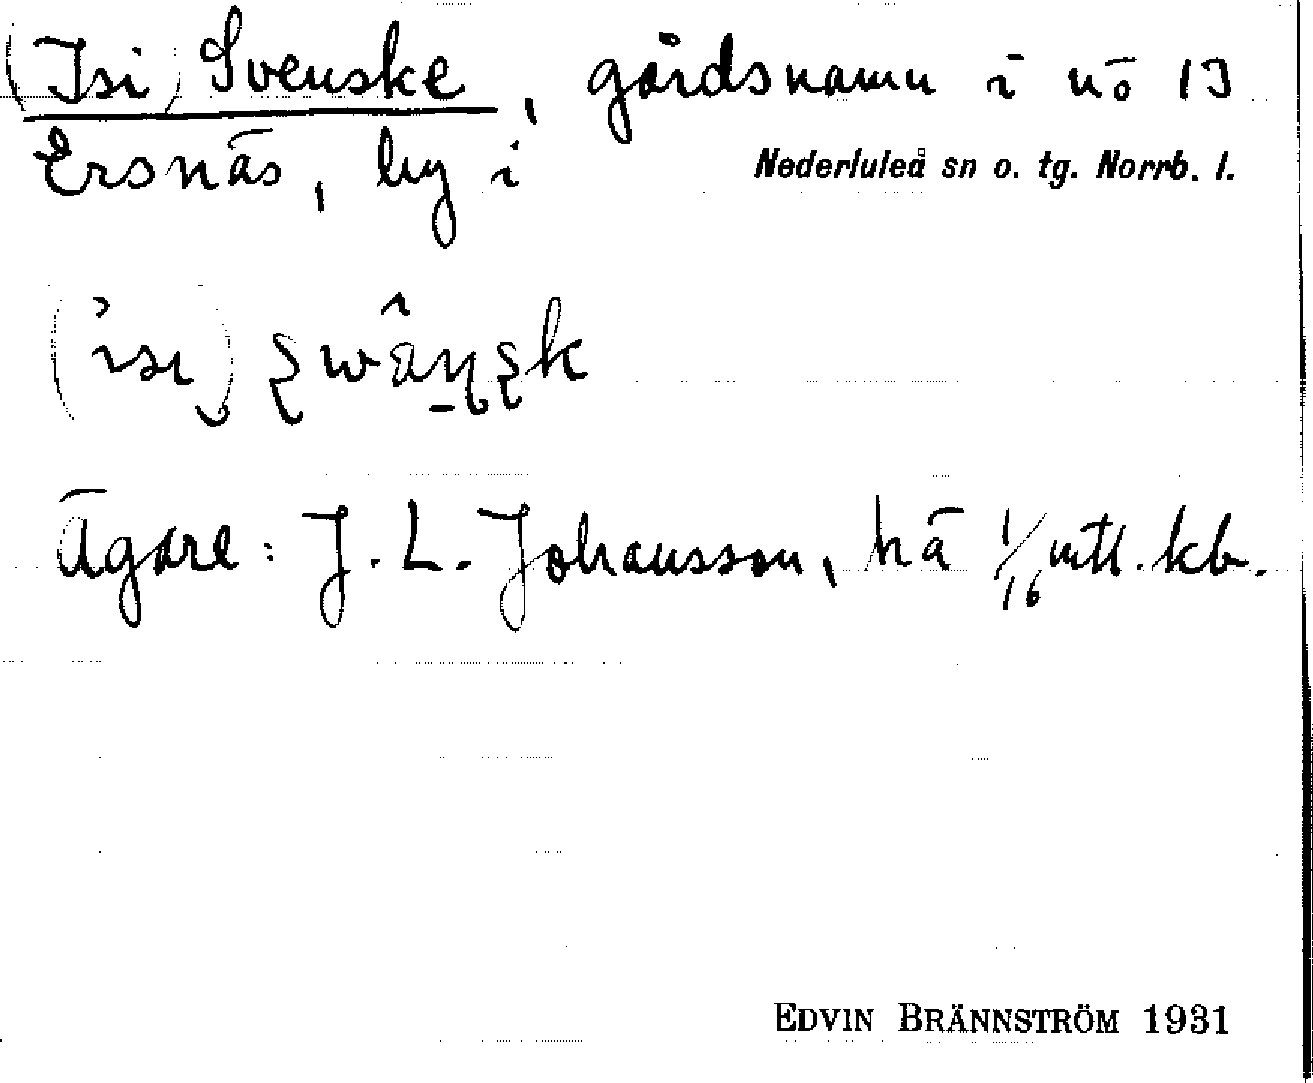 (Isi) Svenske, gårdsnamn i nö 13
Ersnäs, by i Nederluleå sn o. tg. Norrb. l.
Ägare: J. L. Johansson, hä 1/16 mtl. kb.
EDVIN BRÄNNSTRÖM 1931